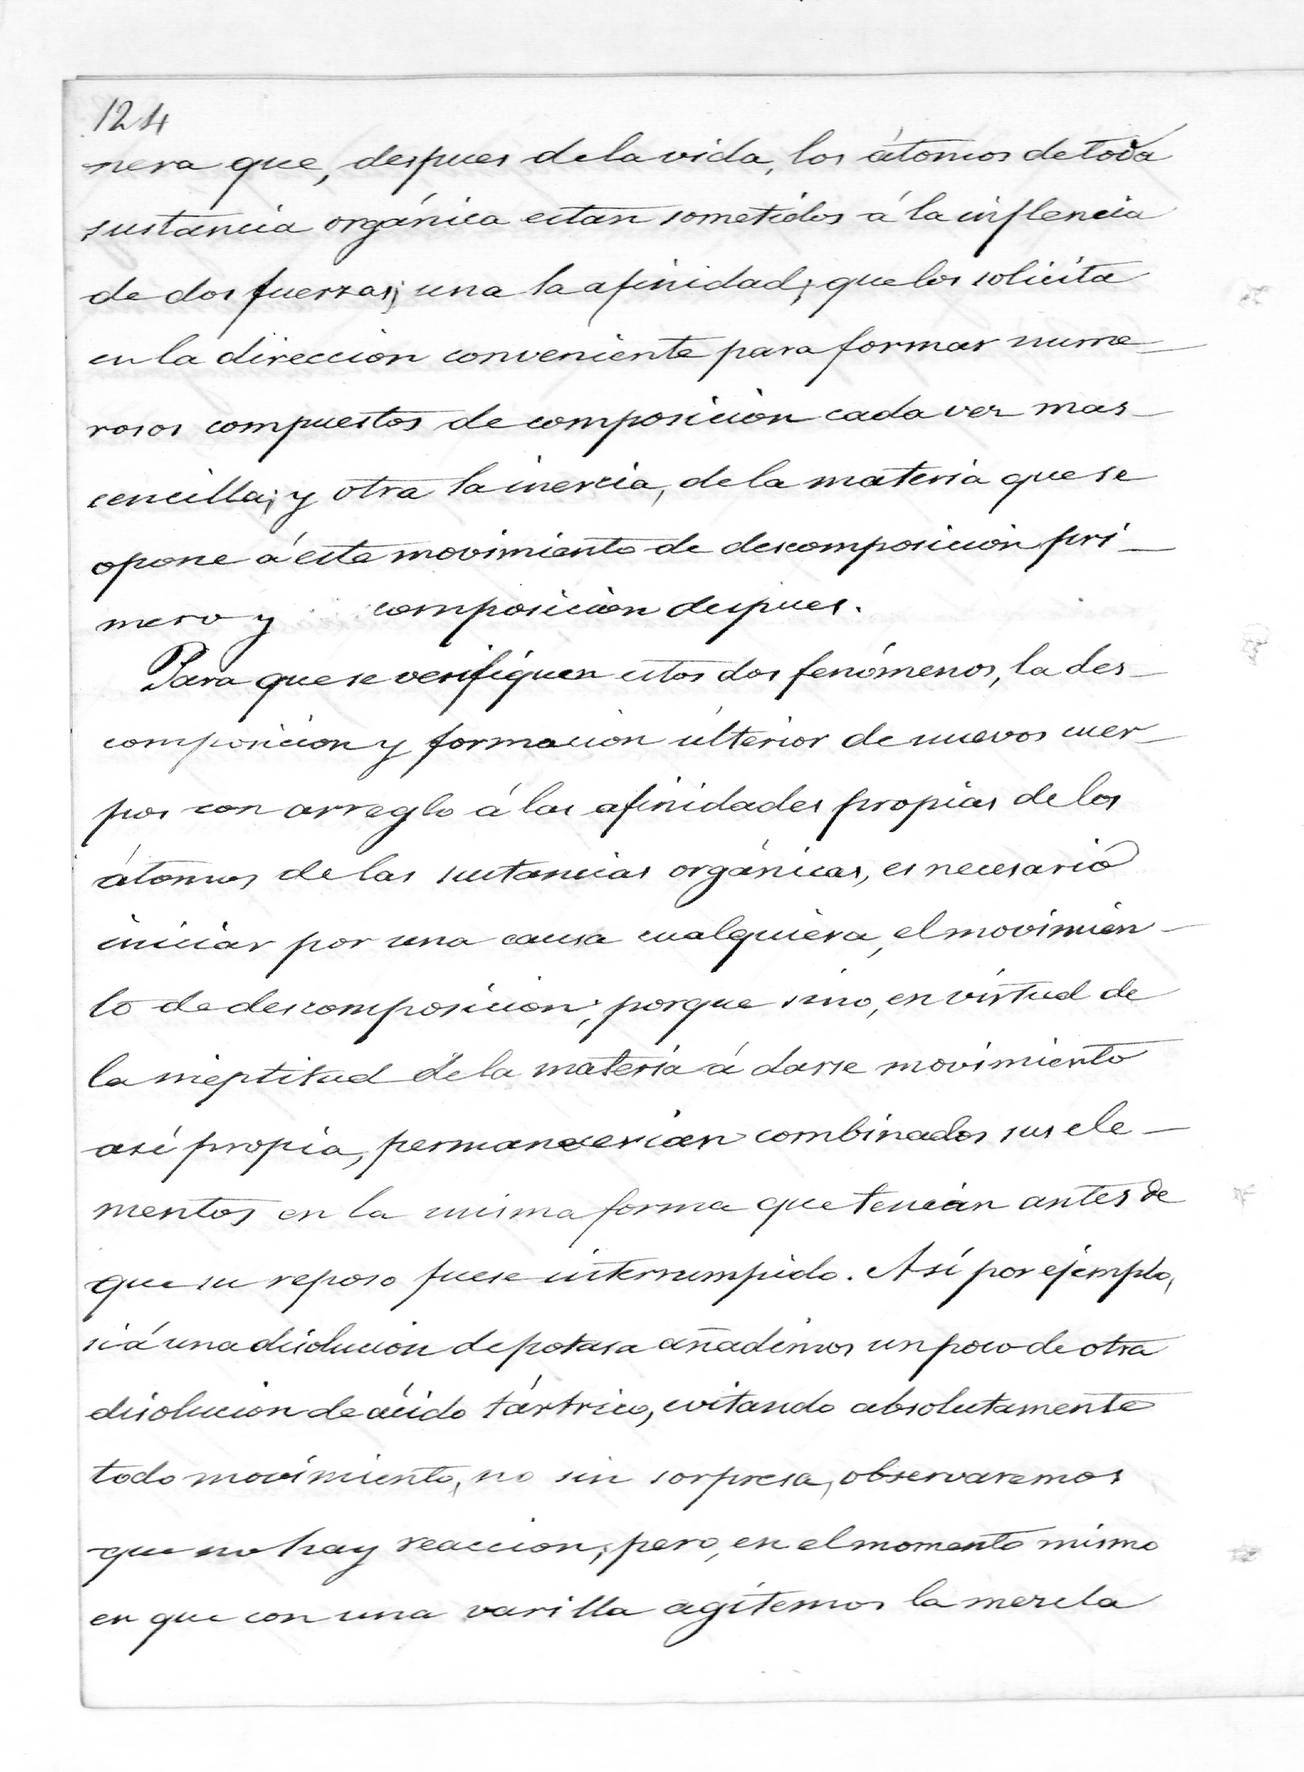 124
nera que, despues de la vida, los átomos de toda
sustancia orgánica estan sometidos á la inflencia
de dos fuerzas; una la afinidad; que los solicita
en la direccion conveniente para formar nume-
rosos compuestos de composicion cada vez mas
sencilla; y otra la inercia, de la materia que se
opone á este movimiento de descomposicion pri-
mero y composicion despues.
Para que se verifiquen estos dos fenómenos, la des-
composicion y formacion últerior de nuevos cuer-
pos con arreglo á las afinidades propias de los
átomos de las sustancias orgánicas, es necesario
iniciar por una causa cualquiera, el movimien-
to de descomposicion; porque sino, en virtud de
la ineptitud de la materia á darse movimiento
asi propia, permanecerian combinados sus ele-
mentos en la misma forma que tenian antes de
que su reposo fuese interrumpido. Así por ejemplo,
si á una disolucion de potasa añadimos un poco de otra
disolucion de ácido tártrico, evitando absolutamente
todo movimiento, no sin sorpresa, observaremos
que no hay reaccion; pero, en el momento mismo
en que con una varilla agitemos la mezcla